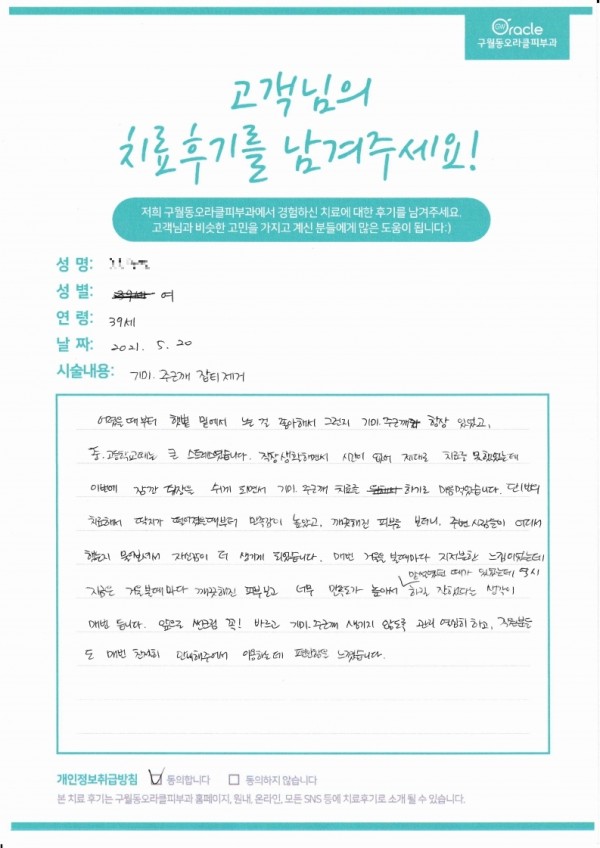 Oracle
구월동오라클피부과
고객님의
치료후기를 남겨주세요!
저희 구월동오라클피부과에서 경험하신 치료에 대한 후기를 남겨주세요.
고객님과 비슷한 고민을 가지고 계신 분들에게 많은 도움이 됩니다:)
성 명:
성 별: 여
연 령: 39세
날 짜: 2021. 5. 20
시술내용: 기미. 주근깨 잡티제거
어렸을 때부터 햇볕 밑에서 노는 걸 좋아해서 그런지 기미. 주근깨가 항상 있었고,
중. 고등학교때는 큰 스트레스였습니다. 직장생활하면서 시간이 없어 제대로 치료를 못했었는데
이번에 잠깐 직장을 쉬게 되면서 기미. 주근깨 치료를 하기로 마음먹었습니다. 단계부터
치료해서 딱지가 떨어졌을때부터 만족감이 높았고, 깨끗해진 피부를 보더니. 주변 사람들이 어디서
했는지 물어봐서 자신감이 더 생기게 되었습니다. 매번 거울 볼때마다 지저분한 느낌이었는데
지금은 거울볼때마다 깨끗해진 피부보고 너무 만족도가 높아서 망설였던 때가 있었는데 역시 하길 잘했다는 생각이
매번 듭니다. 앞으로 썬크림 꼭! 바르고 기미.주근깨 생기지 않도록 관리 열심히 하고, 직원분들
도 매번 친절히 안내해주어서 이용하는데 편안함을 느꼈습니다.
개인정보취급방침 동의합니다 동의하지 않습니다
본 치료 후기는 구월동오라클피부과 홈페이지, 원내, 온라인, 모든 SNS 등에 치료후기로 소개 될 수 있습니다.